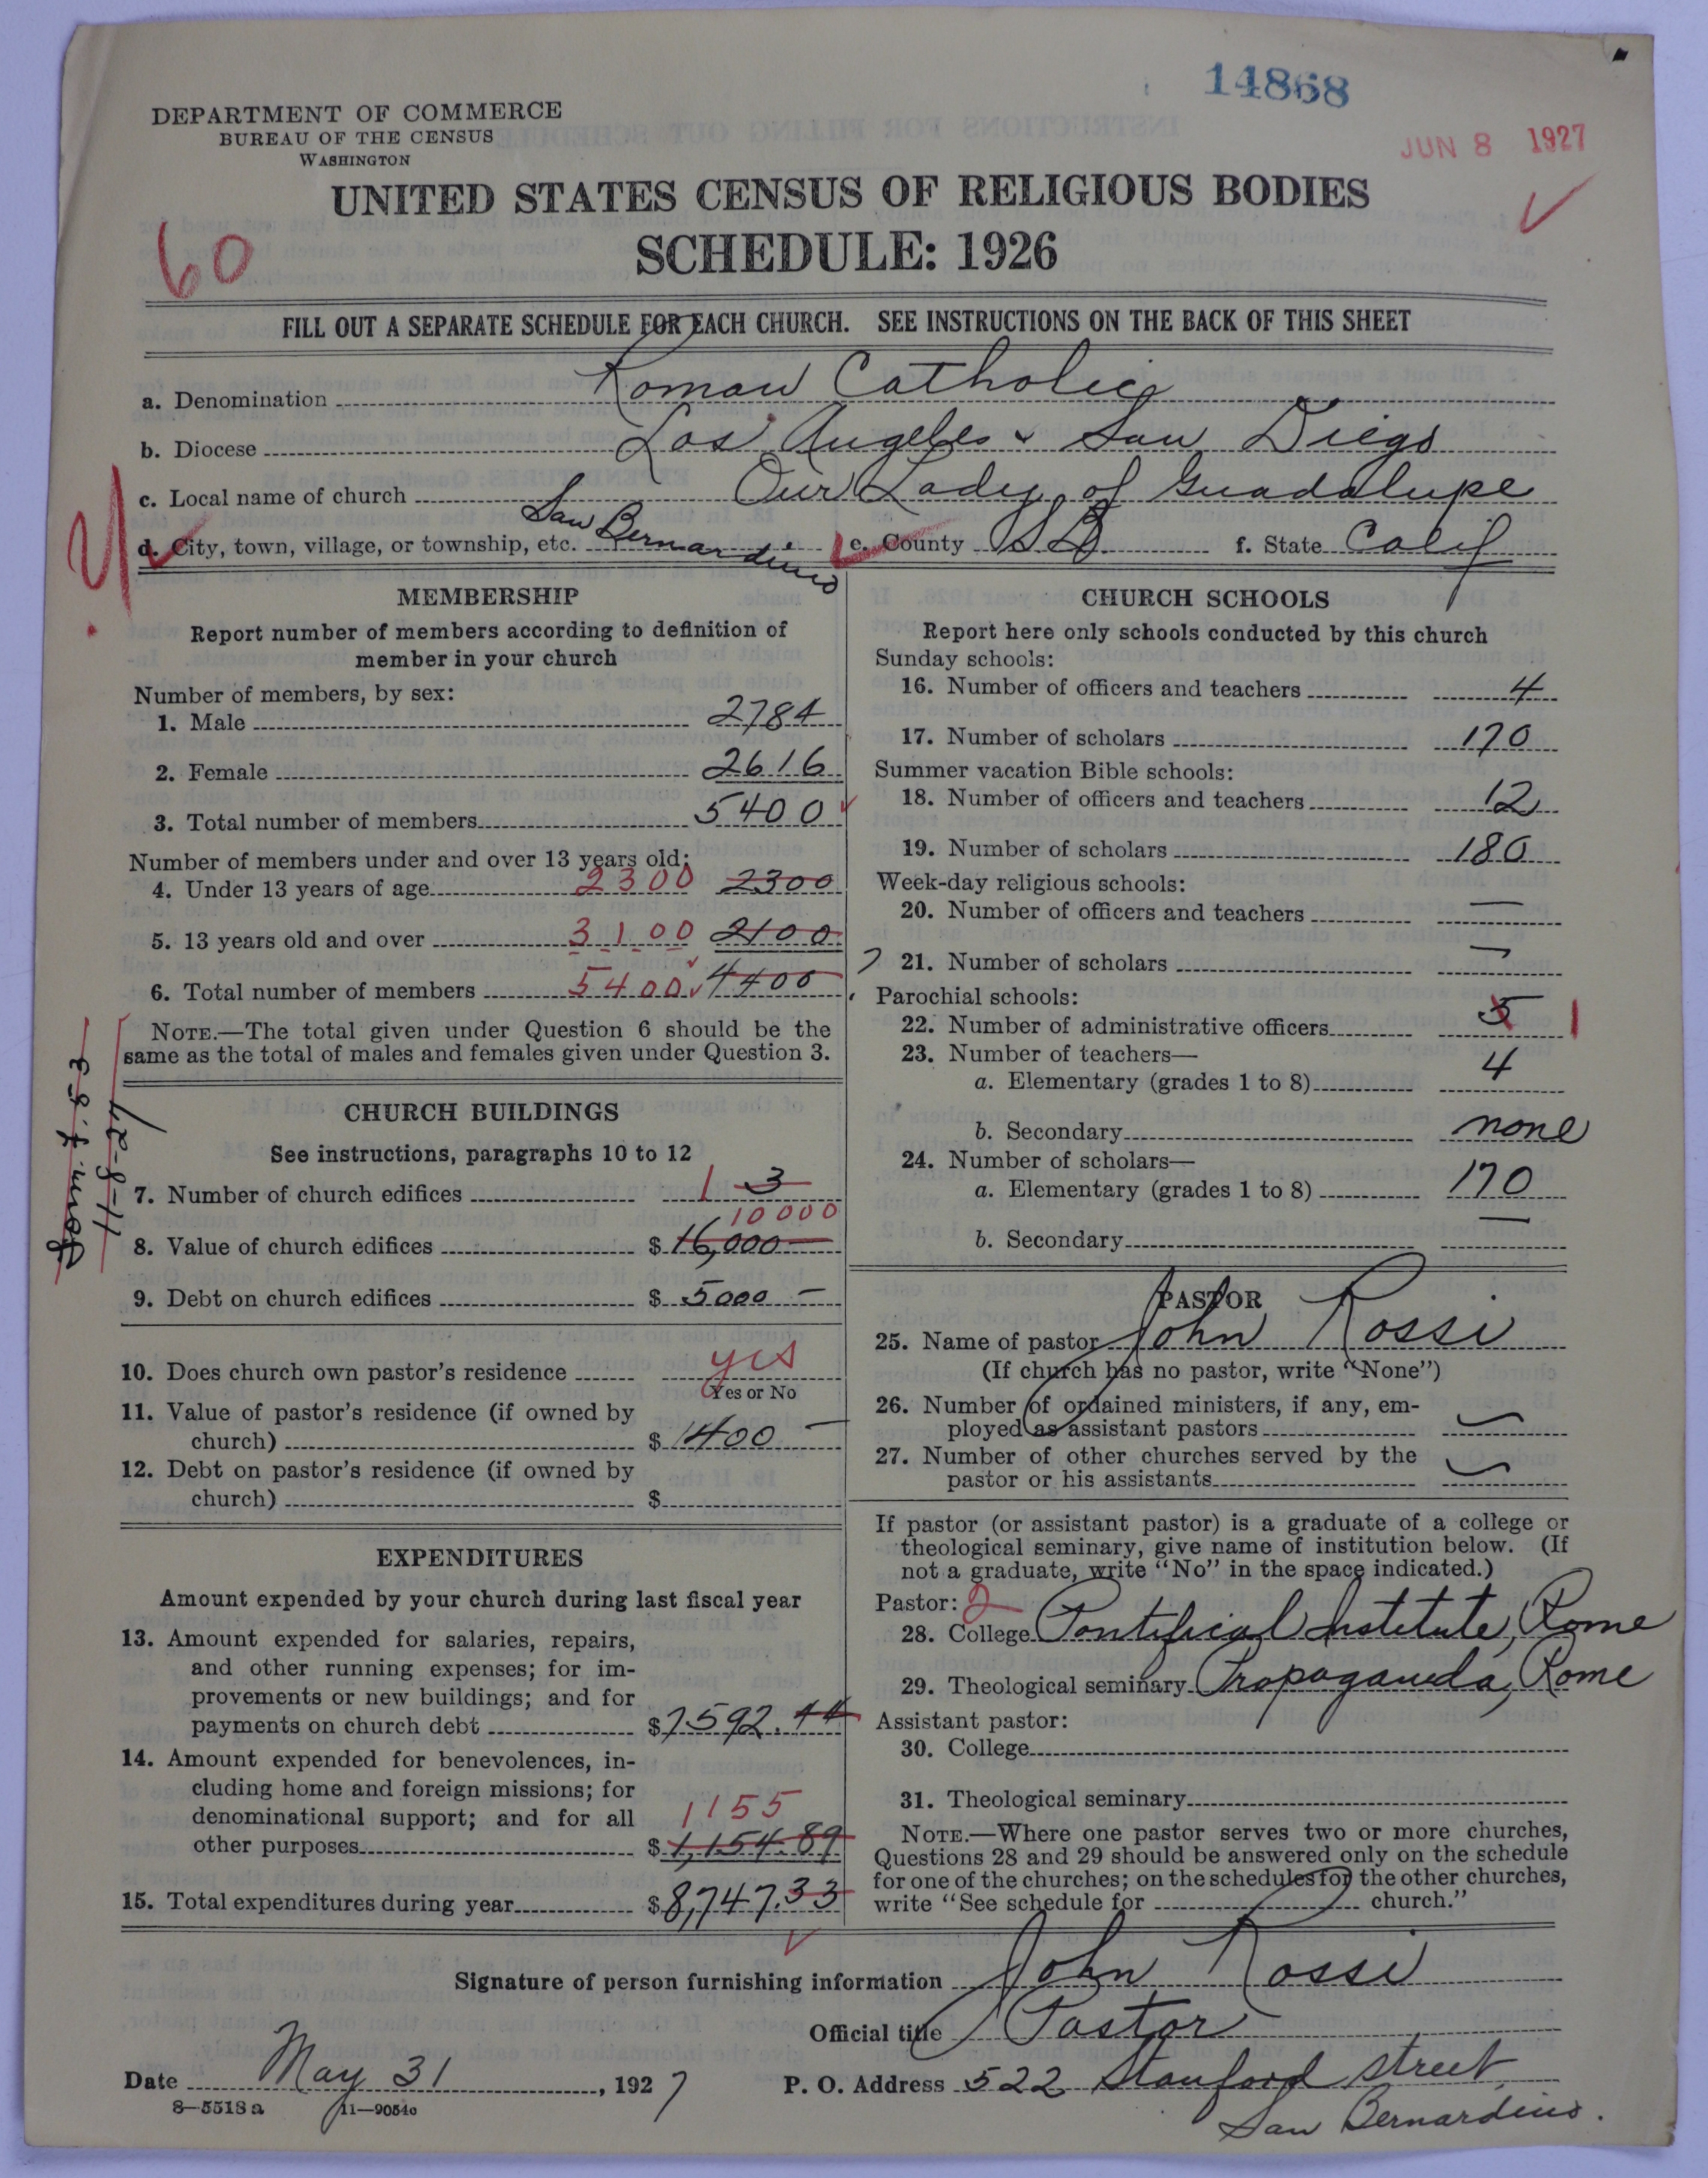 14868
DEPARTMENT OF COMMERCE
BUREAU OF THE CENSUS
WASHINGTON
JUN 8 1927
UNITED STATES CENSUS OF RELIGIOUS BODIES
60
SCHEDULE: 1926
FILL OUT A SEPARATE SCHEDULE FOR EACH CHURCH. SEE INSTRUCTIONS ON THE BACK OF THIS SHEET
a. Denomination Roman Catholic
b. Diocese Los Angeles & San Diego
c. Local name of church Our Lady of Guadalupe
d. City, town, village, or township, etc. San Bernardino e. County S B f. State Calif
MEMBERSHIP
Report number of members according to definition of
member in your church
Number of members, by sex:
1. Male 2784
2. Female 2616
3. Total number of members 5400
Number of members under and over 13 years old:
4. Under 13 years of age 2300 2300
5. 13 years old and over 3100 2100
6. Total number of members 5400 4400
NOTE.—The total given under Question 6 should be the
same as the total of males and females given under Question 3.
11-8-27
CHURCH BUILDINGS
See instructions, paragraphs 10 to 12
7. Number of church edifices 1 3
10000
8. Value of church edifices $ 16,000
9. Debt on church edifices $ 5000 —
10. Does church own pastor's residence yes
Yes or No
11. Value of pastor's residence (if owned by
church) $ 1400 —
12. Debt on pastor's residence (if owned by
church) $
EXPENDITURES
Amount expended by your church during last fiscal year
13. Amount expended for salaries, repairs,
and other running expenses; for im-
provements or new buildings; and for
payments on church debt $ 7592.44
14. Amount expended for benevolences, in-
cluding home and foreign missions; for
denominational support; and for all
1155
other purposes $ 1,154.89
15. Total expenditures during year $ 8,747.33
CHURCH SCHOOLS
Report here only schools conducted by this church
Sunday schools:
16. Number of officers and teachers 4
17. Number of scholars 170
Summer vacation Bible schools:
18. Number of officers and teachers 12
19. Number of scholars 180
Week-day religious schools:
20. Number of officers and teachers —
21. Number of scholars —
Parochial schools:
22. Number of administrative officers 5 1
23. Number of teachers—
a. Elementary (grades 1 to 8) 4
b. Secondary none
24. Number of scholars—
a. Elementary (grades 1 to 8) 170
b. Secondary —
PASTOR
25. Name of pastor John Rossi
(If church has no pastor, write "None")
26. Number of ordained ministers, if any, em-
ployed as assistant pastors —
27. Number of other churches served by the
pastor or his assistants —
If pastor (or assistant pastor) is a graduate of a college or
theological seminary, give name of institution below. (If
not a graduate, write "No" in the space indicated.)
Pastor: 2
28. College Pontifical Institute, Rome
29. Theological seminary Propaganda, Rome
Assistant pastor:
30. College
31. Theological seminary
NOTE.—Where one pastor serves two or more churches,
Questions 28 and 29 should be answered only on the schedule
for one of the churches; on the schedules for the other churches,
write "See schedule for church."
Signature of person furnishing information John Rossi
Official title Pastor
Date May 31, 1927 P. O. Address 522 Stanford street
San Bernardino.
8—5518a 11—9054c